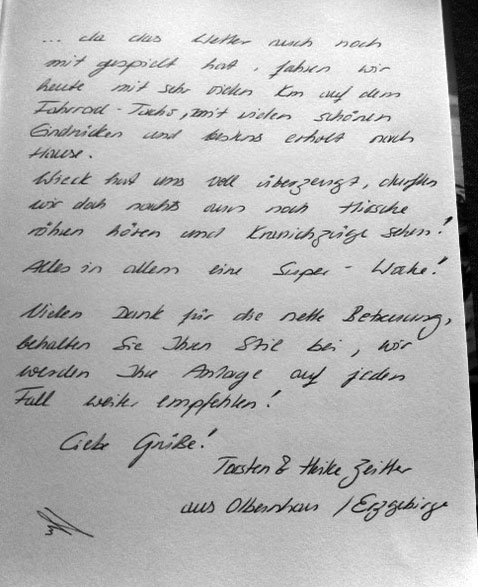 ... da das Wetter auch noch
mit gespielt hat, fahren wir
heute mit sehr vielen Km auf dem
Fahrrad-Tacho, mit vielen schönen
Eindrücken und bestens erholt nach
Hause.
Wieck hat uns voll überzeugt, durften
wir doch nachts auch noch Hirsche
röhren hören und Kranichzüge sehen!
Alles in allem eine Super-Woche!
Vielen Dank für die nette Betreuung,
behalten Sie Ihren Stil bei, wir
werden Ihre Anlage auf jeden
Fall weiter empfehlen!
Liebe Grüße!
Torsten & Heike
aus Olbernhau /Erzgebirge